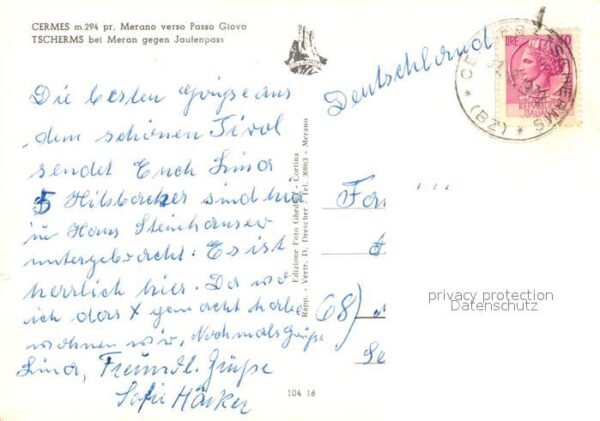 CERMES m.294 pr. Merano verso Passo Giovo
TSCHERMS bei Meran gegen Jaufenpass
Deutschland
LIRE 40
REPUBBLICA
ITALIANA
TSCHERMS * (BZ) *
Die besten Grüsse aus
dem schönen Tirol
sendet Euch Lina
5 Hilsbacher sind hier
im Haus Steinhauser
untergebracht. Es ist
herrlich hier. Da wo
ich das X gemacht habe
wohnen wir. Nochmals Grüße
Lina, Freundl. Grüße
Sofie Häcker
Edizione Foto Ghedina - Cortina
Rapp. - Vertr. D. Drescher - Tel. 30803 - Merano
Fam
68)
privacy protection
Datenschutz
104 16